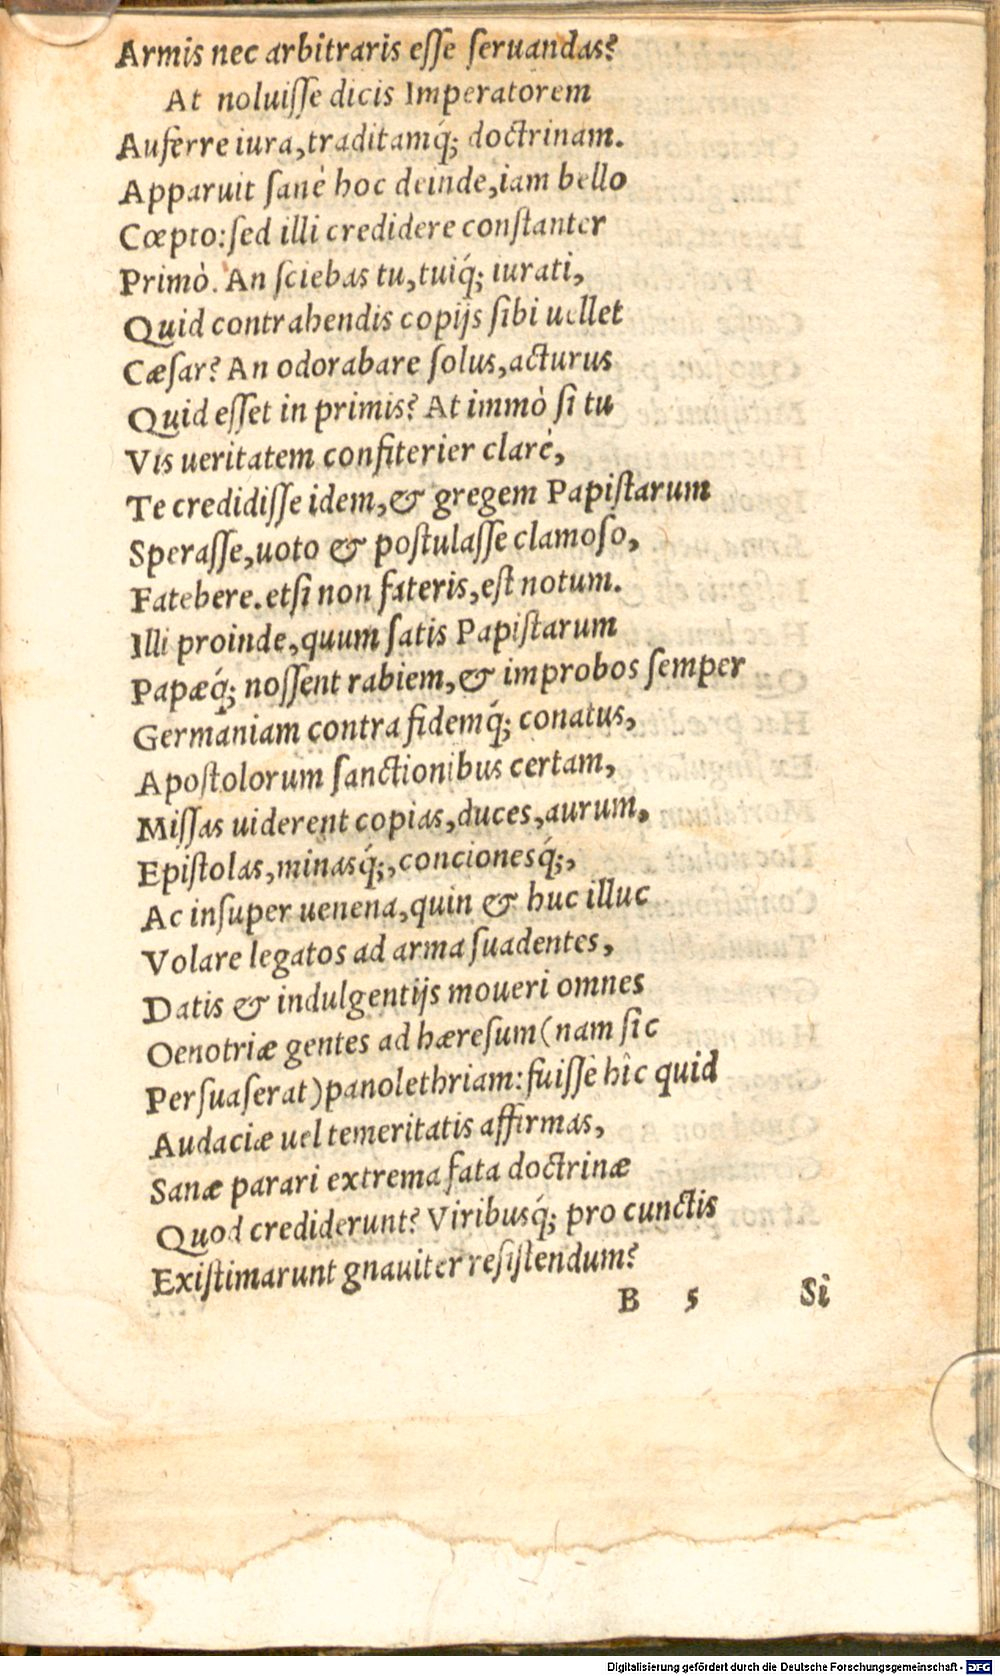 Armis nec arbitraris eſſe ſeruandas?
At noluiſſe dicis Imperatorem
Auferre iura,traditamq́; doctrinam.
Apparuit ſanè hoc deinde,iam bello
Cœpto:ſed illi credidere conſtanter
Primò. An ſciebas tu,tuiq́; iurati,
Quid contrahendis copijs ſibi uellet
Cæſar? An odorabare ſolus,acturus
Quid eſſet in primis? At immò ſi tu
Vis ueritatem confiterier clarè,
Te credidiſſe idem,& gregem Papiſtarum
Speraſſe,uoto & poſtulaſſe clamoſo,
Fatebere.etſi non fateris,eſt notum.
Illi proinde,quum ſatis Papiſtarum
Papæq́; noſſent rabiem,& improbos ſemper
Germaniam contra fidemq́; conatus,
Apoſtolorum ſanctionibus certam,
Miſſas uiderent copias,duces,aurum,
Epiſtolas,minasq́;,concionesq́;,
Ac inſuper uenena,quin & huc illuc
Volare legatos ad arma ſuadentes,
Datis & indulgentijs moueri omnes
Oenotriæ gentes ad hæreſum(nam ſic
Perſuaſerat)panolethriam:fuiſſè hîc quid
Audaciæ uel temeritatis affirmas,
Sanæ parari extrema fata doctrinæ
Quod crediderunt? Viribusq́; pro cunctis
Exiſtimarunt gnauiter reſiſtendum?
B 5 Si
Digitalisierung gefördert durch die Deutsche Forschungsgemeinschaft - DFG